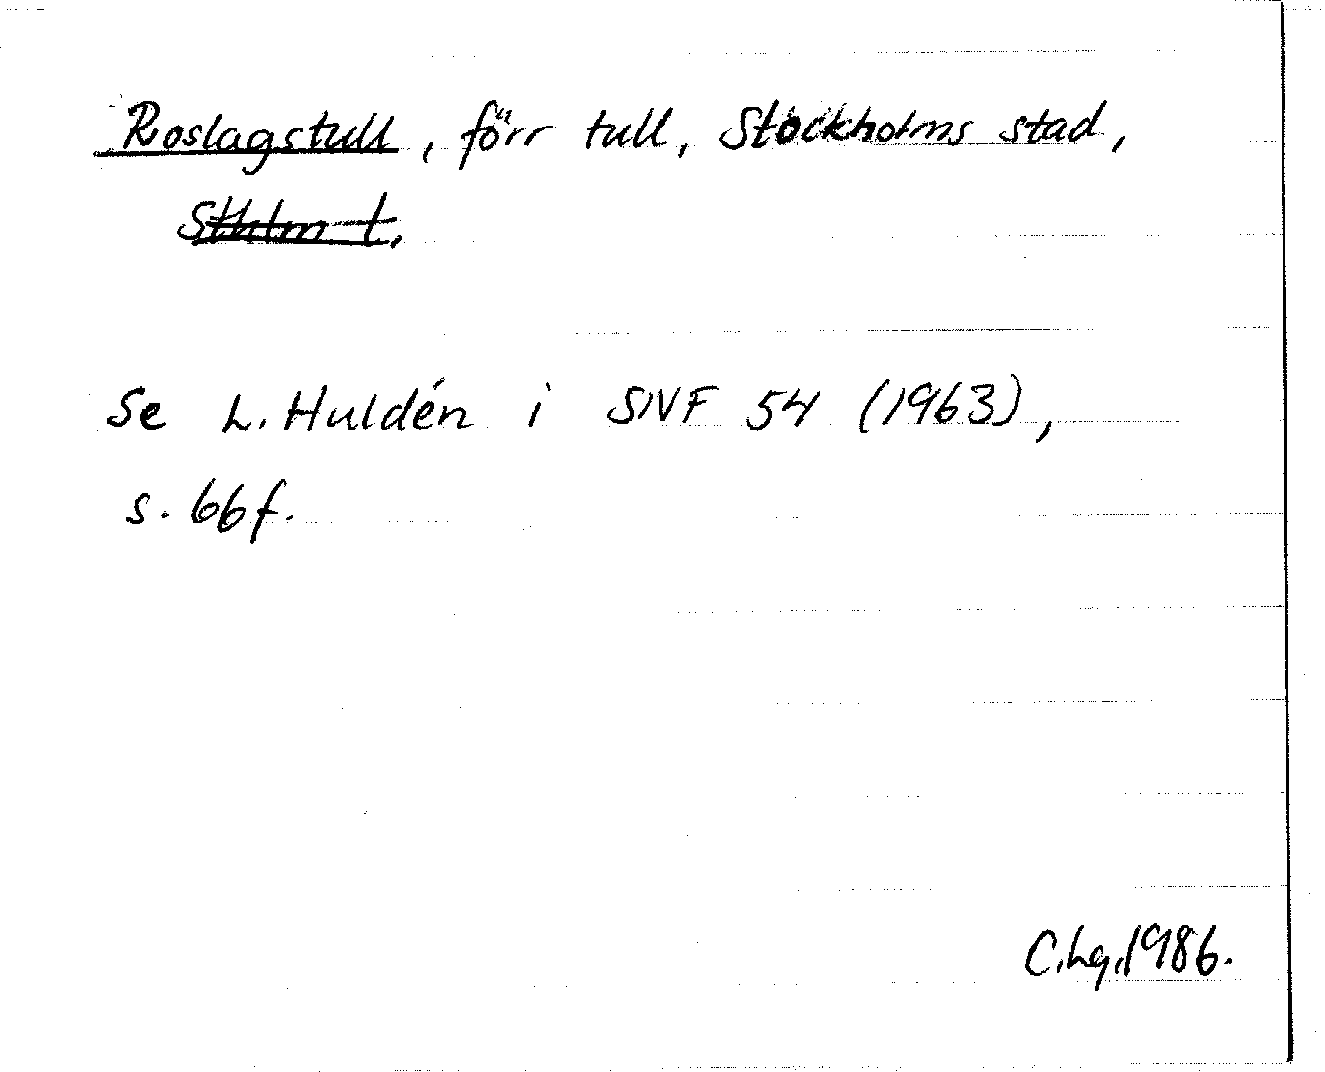 Roslagstull, förr tull, Stockholms stad,
Sthlm l.
Se L. Huldén i SNF 54 (1963),
s. 66f.
C.Lg.1986.